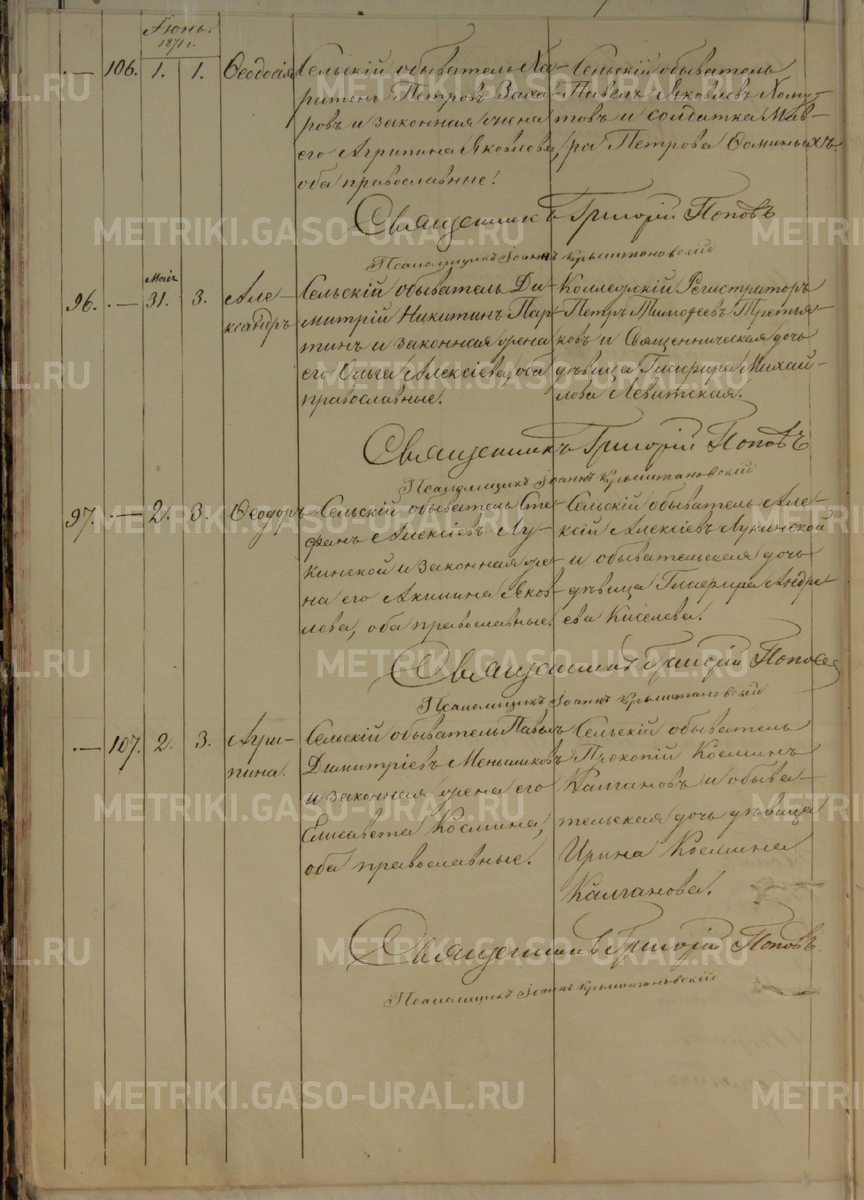 Іюнь.
1871 г.
— 106. 1. 1. Ѳеодосія Сельскій обыватель Ха-
ритонъ Петровъ Заха-
ровъ и законная жена
его Агрипина Яковлева,
оба православные.
Сельскій обыватель
Павелъ Яковлевъ
товъ и солдатка Мав-
ра Петрова Ѳоминыхъ.
Священникъ Григорій Поповъ
Псаломщикъ Іоаннъ
Май
96. — 31. 3. Але-
ксандръ
Сельскій обыватель Ди-
митрій Никитинъ Пар-
тинъ и законная жена
его Ольга Алексіева, оба
православные.
Коллежскій Регистраторъ
Петръ Тимофеевъ Третья-
ковъ и Священническая дочь
дѣвица Глафира Михай-
лова Левитская.
Священникъ Григорій Поповъ
Псаломщикъ Іоаннъ
97. — 2. 3. Ѳеодоръ Сельскій обыватель Сте-
фанъ Алексіевъ Лу-
кинской и законная же-
на его Акилина Яков-
лева, оба православные.
Сельскій обыватель Але-
ксій Алексіевъ Лукинской
и обывательская дочь
дѣвица Андре-
ева Киселева.
Священникъ Григорій Поповъ
Псаломщикъ Іоаннъ
— 107. 2. 3. Агри-
пина.
Сельскій обыватель Павелъ
Димитріевъ Меньшиковъ
и законная жена его
Елисавета Космина,
оба православные.
Сельскій обыватель
Прокопій Косминъ
Калгановъ и обыва-
тельская дочь дѣвица
Ирина Космина
Калганова.
Священникъ Григорій Поповъ.
Псаломщикъ Іоаннъ
METRIKI.GASO-URAL.RU